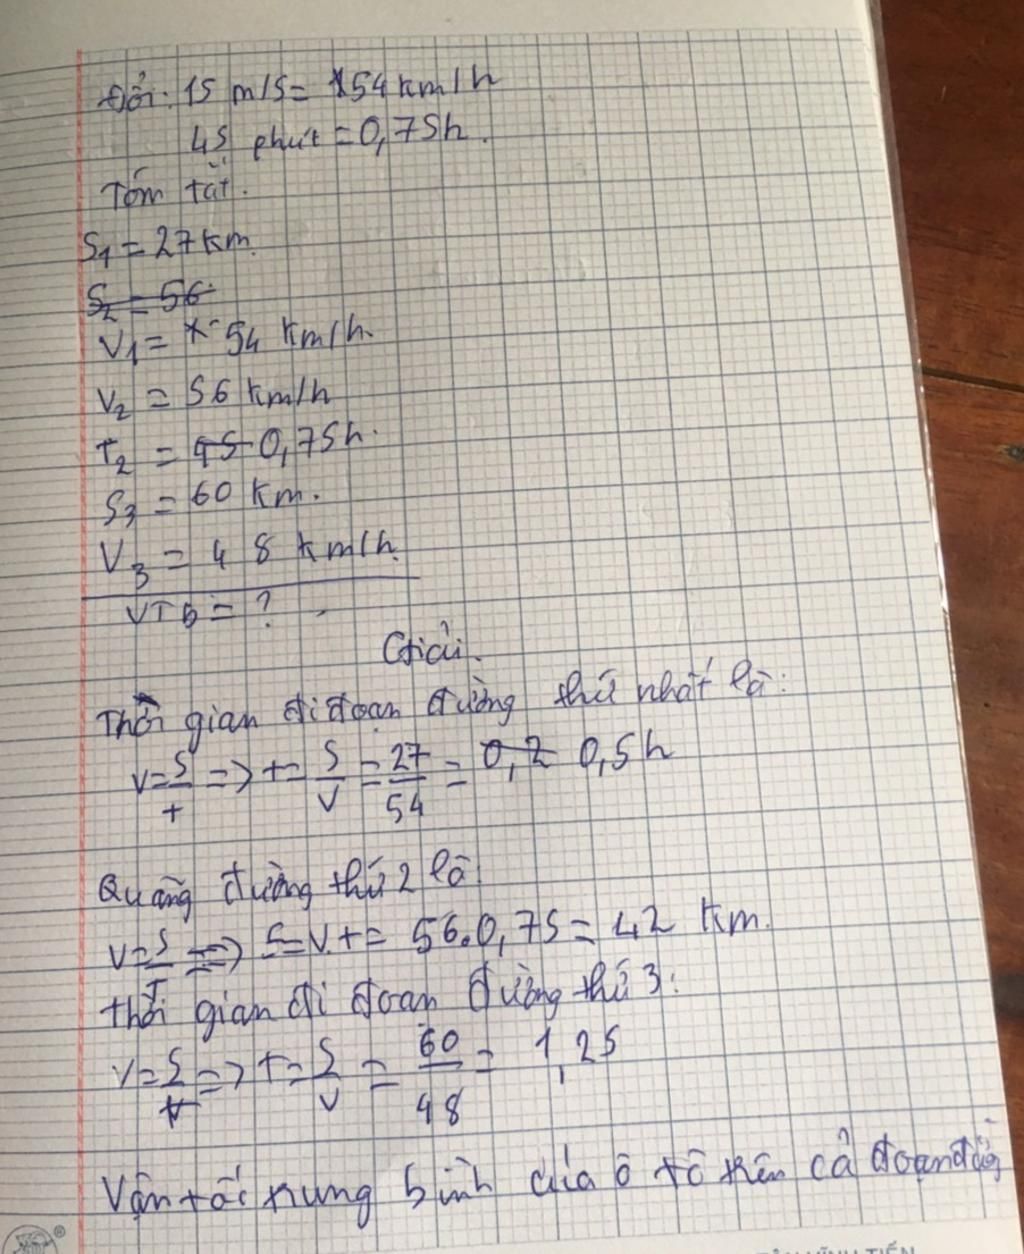 Đổi: 15 m/s = 54 km/h
45 phút = 0,75h.
Tóm tắt.
S₁ = 27 km.
S₂ = 56
V₁ = 54 km/h.
V₂ = 56 km/h
t₂ = 45 0,75h.
S₃ = 60 km.
V₃ = 48 km/h.
VTB = ?
Giải.
Thời gian đi đoạn đường thứ nhất là:
v = S/t => t = S/v = 27/54 = 0,2 0,5h
Quãng đường thứ 2 là:
v = S/t => S = v.t = 56.0,75 = 42 km.
thời gian đi đoạn đường thứ 3:
v = S/t => t = S/v = 60/48 = 1,25
Vận tốc trung bình của ô tô trên cả đoạn đường